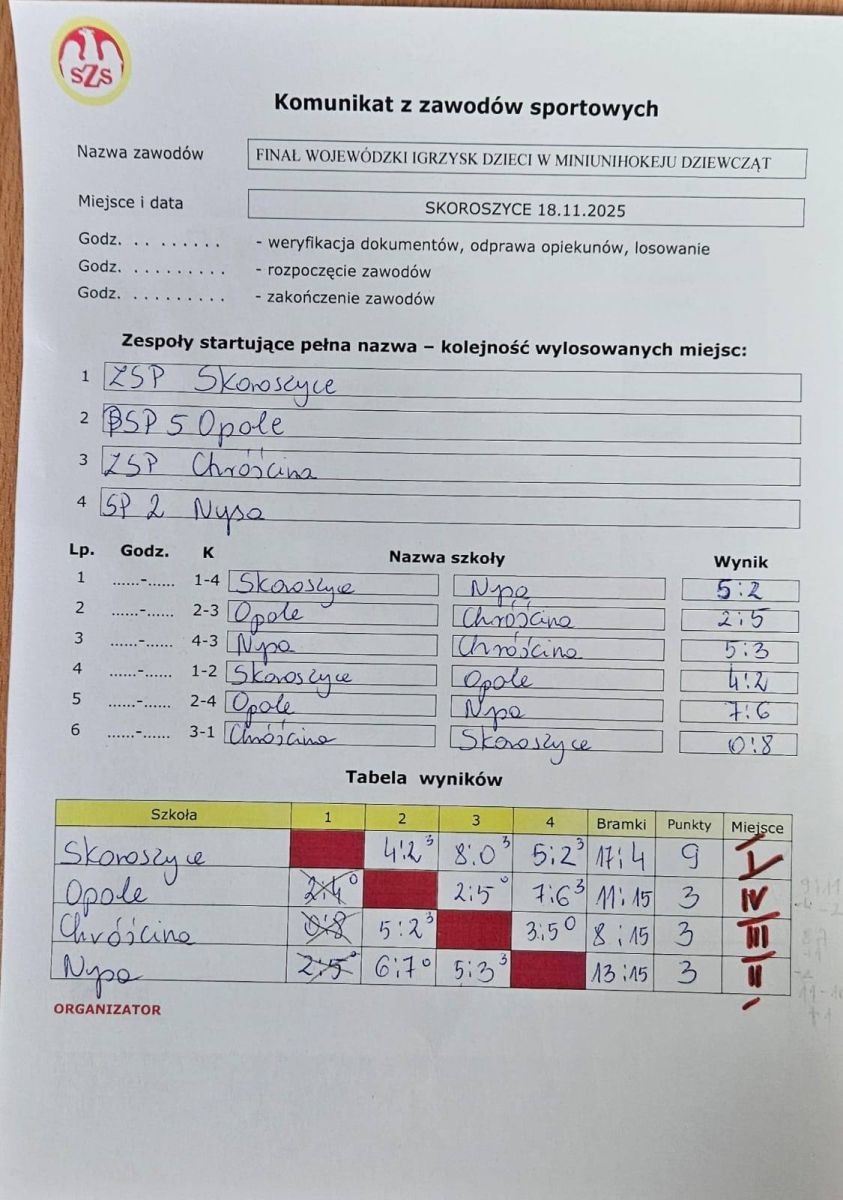 SZS
Komunikat z zawodów sportowych
Nazwa zawodów FINAŁ WOJEWÓDZKI IGRZYSK DZIECI W MINIUNIHOKEJU DZIEWCZĄT
Miejsce i data SKOROSZYCE 18.11.2025
Godz. . . . . . . . . . - weryfikacja dokumentów, odprawa opiekunów, losowanie
Godz. . . . . . . . . . - rozpoczęcie zawodów
Godz. . . . . . . . . . - zakończenie zawodów
Zespoły startujące pełna nazwa – kolejność wylosowanych miejsc:
1 ZSP Skoroszyce
2 PSP 5 Opole
3 ZSP Chróścina
4 SP 2 Nysa
Lp. Godz. K Nazwa szkoły Wynik
1 ......-...... 1-4 Skoroszyce Nysa 5:2
2 ......-...... 2-3 Opole Chróścina 2:5
3 ......-...... 4-3 Nysa Chróścina 5:3
4 ......-...... 1-2 Skoroszyce Opole 4:2
5 ......-...... 2-4 Opole Nysa 7:6
6 ......-...... 3-1 Chróścina Skoroszyce 0:8
Tabela wyników
Szkoła 1 2 3 4 Bramki Punkty Miejsce
Skoroszyce 4:2 3 8:0 3 5:2 3 17:4 9 I
Opole 2:4 0 2:5 0 7:6 3 11:15 3 IV
Chróścina 0:8 5:2 3 3:5 0 8:15 3 III
Nysa 2:5 0 6:7 0 5:3 3 13:15 3 II
ORGANIZATOR